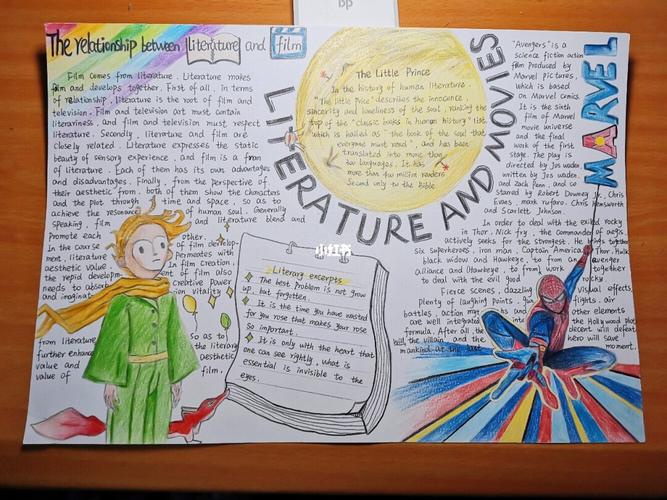 The relationship between literature and film
Film comes from literature. Literature makes
film and develops together. First of all, In terms
of relationship, literature is the root of film and
television. Film and television art must contain
literariness, and film and television must respect
literature. Secondly, literature and film are
closely related. Literature expresses the static
beauty of sensory experience, and film is a from
of literature. Each of them has its own advantages
and disadvantages. Finally, from the perspective of
their aesthetic form, both of them show the characters
and the plot through time and space, so as to
achieve the resonance of human soul. Generally
speaking, film and literature blend and
Promote each other.
In the course of film develop-
ment, literature Permeates with
aesthetic value. In film creation,
the rapid development of film also
needs to absorb creative power
and imagination vitality
from literature so as to
further enhance the literary
value and aesthetic
value of film.
LITERATURE AND MOVIES
The Little Prince
In the history of human literature,
"The little prince" describes the innocence,
sincerity and loneliness of the soul, ranking the
top of the "classic books in human history" list,
which is hailed as "the book of the soul that
everyone must read", and has been
translated into more than
languages. It has
more than million readers
Second only to the Bible
小红书
Literary excerpts
The best problem is not grow
up, but forgotten.
It is the time you have wasted
for you rose that makes your rose
so important.
It is only with the heart that
one can see rightly, what is
essential is invisible to the
eyes.
MARVEL
"Avengers" is a
science fiction action
film produced by
Marvel pictures,
which is based
on Marvel comics.
It is the sixth
film of Marvel
movie universe
and the final
work of the first
stage. The play is
directed by Jos waden,
written by Jos waden
and Zack Penn, and co
starred by Robert Downey Jr, Chris
Evans, mark rufaro, Chris Hemsworth
and Scarlett Johnson.
In order to deal with the exiled rocky
in Thor, Nick fry, the commander of aegis,
actively seeks for the strongest. He brings together
six superheroes, iron man, Captain America, Thor, Hulk
black widow and Hawkeye, to from an avenger
alliance and Hawkeye, to from work together
to deal with the evil god rocky
Fierce scenes, dazzling visual effects,
Plenty of laughing points, gun fights, air
battles, action and other elements
are well integrated the Hollywood plot
formula. After all, the decent will defeat
the villain, and the hero will save
mankind at the last moment.